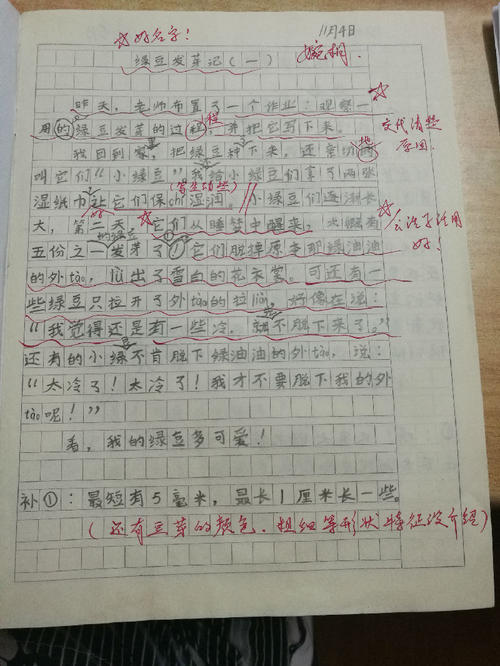 好名字！
11月4日
绿豆发芽记（一）
昨天，老师布置了一个作业：观察一
用的绿豆发芽的过程，并把它写下来。
程
交代清楚
原因。
我回到家，把绿豆种下来，还亲切地
叫它们“小绿豆”。我给小绿豆们拿了两张
（写生动些）
湿纸巾让它们保chí湿润。小绿豆们逐渐长
大，第二天，它们从睡梦中醒来，大概有
好
会活学活用
好！
五份之一发芽了①它们脱掉原来那绿油油
的外tào，lù出了雪白的花衣裳。可还有一
些绿豆只拉开了外tào的拉liàn，好像在说：
“我觉得还是有一些冷，就不脱下来了。”
还有的小绿不肯脱下绿油油的外tào，说：
豆
“太冷了！太冷了！我才不要脱下我的外
tào呢！”
看，我的绿豆多可爱！
补①：最短有5毫米，最长1厘米长一些。
（还有豆芽的颜色、粗细等形状特征没介绍）